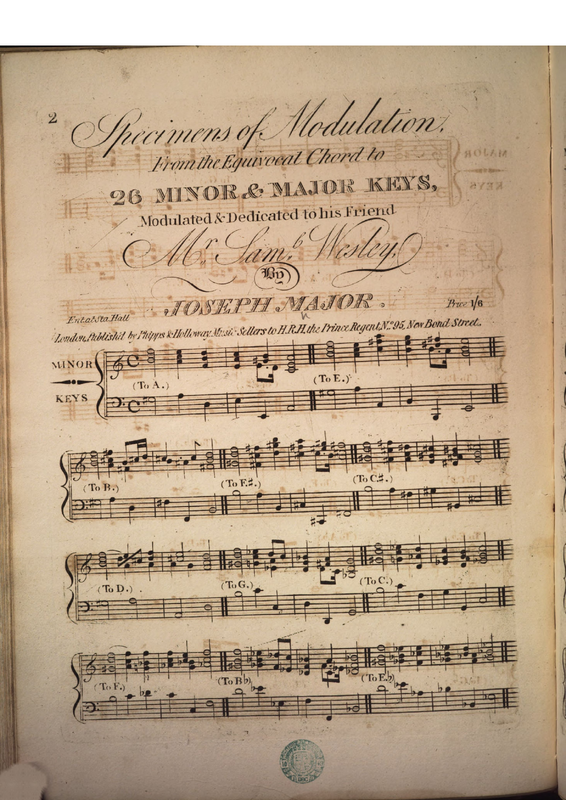 2
Specimens of Modulation.
From the Equivocal Chord to
26 MINOR & MAJOR KEYS,
Modulated & Dedicated to his Friend
Mr. Saml. Wesley.
By
JOSEPH MAJOR.
Ent. at Sta. Hall
Price 1/6
London, Publish'd by Phipps & Holloway, Music Sellers to H.R.H. the Prince Regent, No. 95, New Bond Street.
MINOR
KEYS
(To A.)
(To E.)
(To B.)
(To F♯.)
(To C♯.)
(To D.)
(To G.)
(To C.)
(To F.)
(To B♭)
(To E♭)